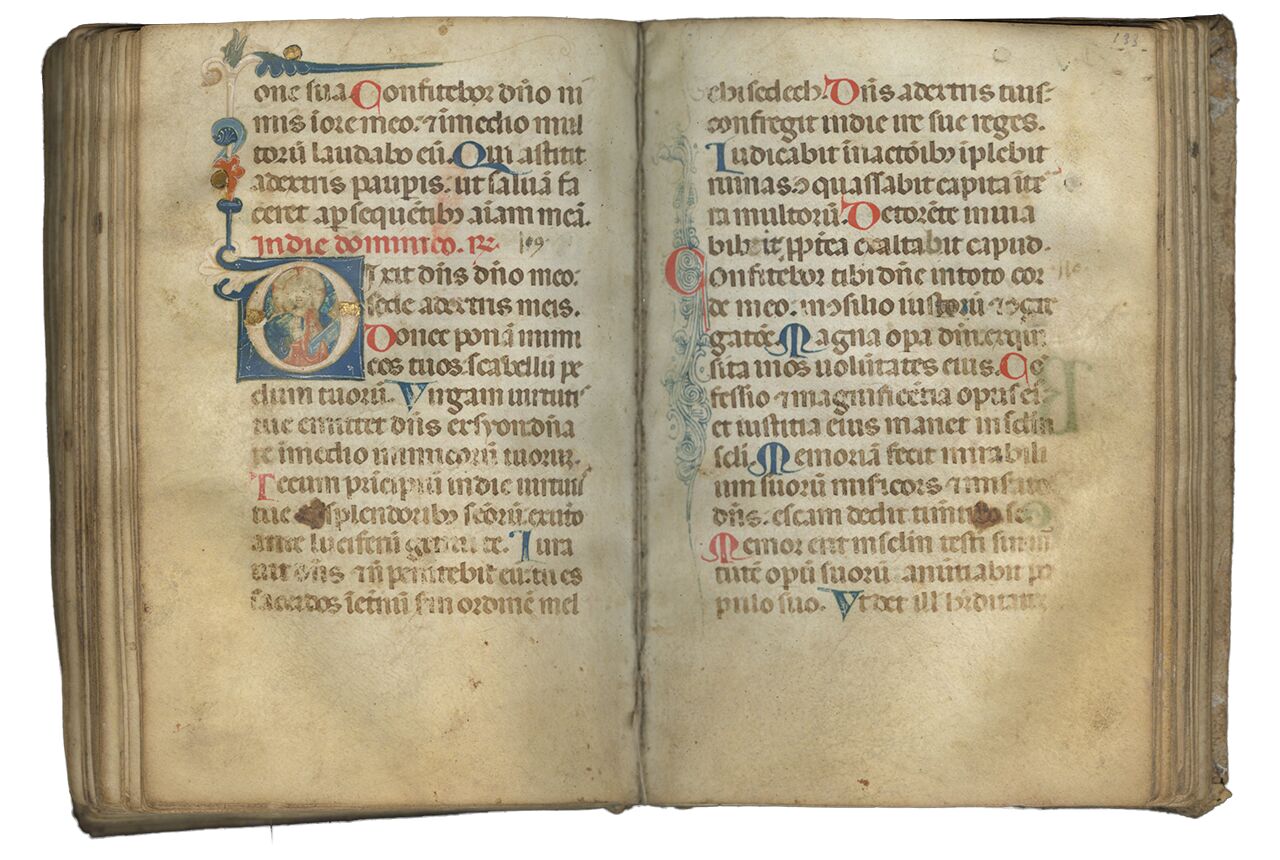 one sua. Confitebor dño ni
mis i ore meo. ⁊ i medio mul
torũ laudabo eũ. Qui astitit
adextris paupis. ut saluã fa
ceret apsequẽtibꝫ aĩam meã.
In die dominico. 109
Dixit dñs dño meo:
sede adextris meis.
Donec ponã inimi
cos tuos. scabellũ pe
dum tuorũ. Virgam uirtuti
tue emittet dñs exsyon dña
re i medio inimicorũ tuorum.
Tecum prĩcipiũ in die uirtuti
tue splendoribꝫ scõrũ exuto
ante luciferũ genui te. Iura
uit dñs ⁊ nõ penitebit eũ. tu es
sacerdos ietnũ scd̃m ordinẽ mel
133
chisedech. Dñs adextris tuis
confregit in die ire sue reges.
Iudicabit i nactõibꝫ iplebit
ruinas. ꝯquassabit capita i te
ra multorũ. De torẽte in uia
bibeit ppt̃ea exaltabit capud.
Confitebor tibi dñe in toto cor
de meo. in ꝯsilio iustorũ ⁊ ꝯgre
gatõe. Magna opa dñi. exqui
sita i nos uolũtates eius. Cõ
fessio ⁊ magnificẽtia opus ei
et iustitia eius manet in sclm
scli. Memoriã fecit mirabili
um suorũ misicors ⁊ misator
dñs. escam dedit timẽtibꝫ se
Memor erit in sclm testi sui
tutẽ opũ suorũ anũtiabit po
pulo suo. Vt det ill